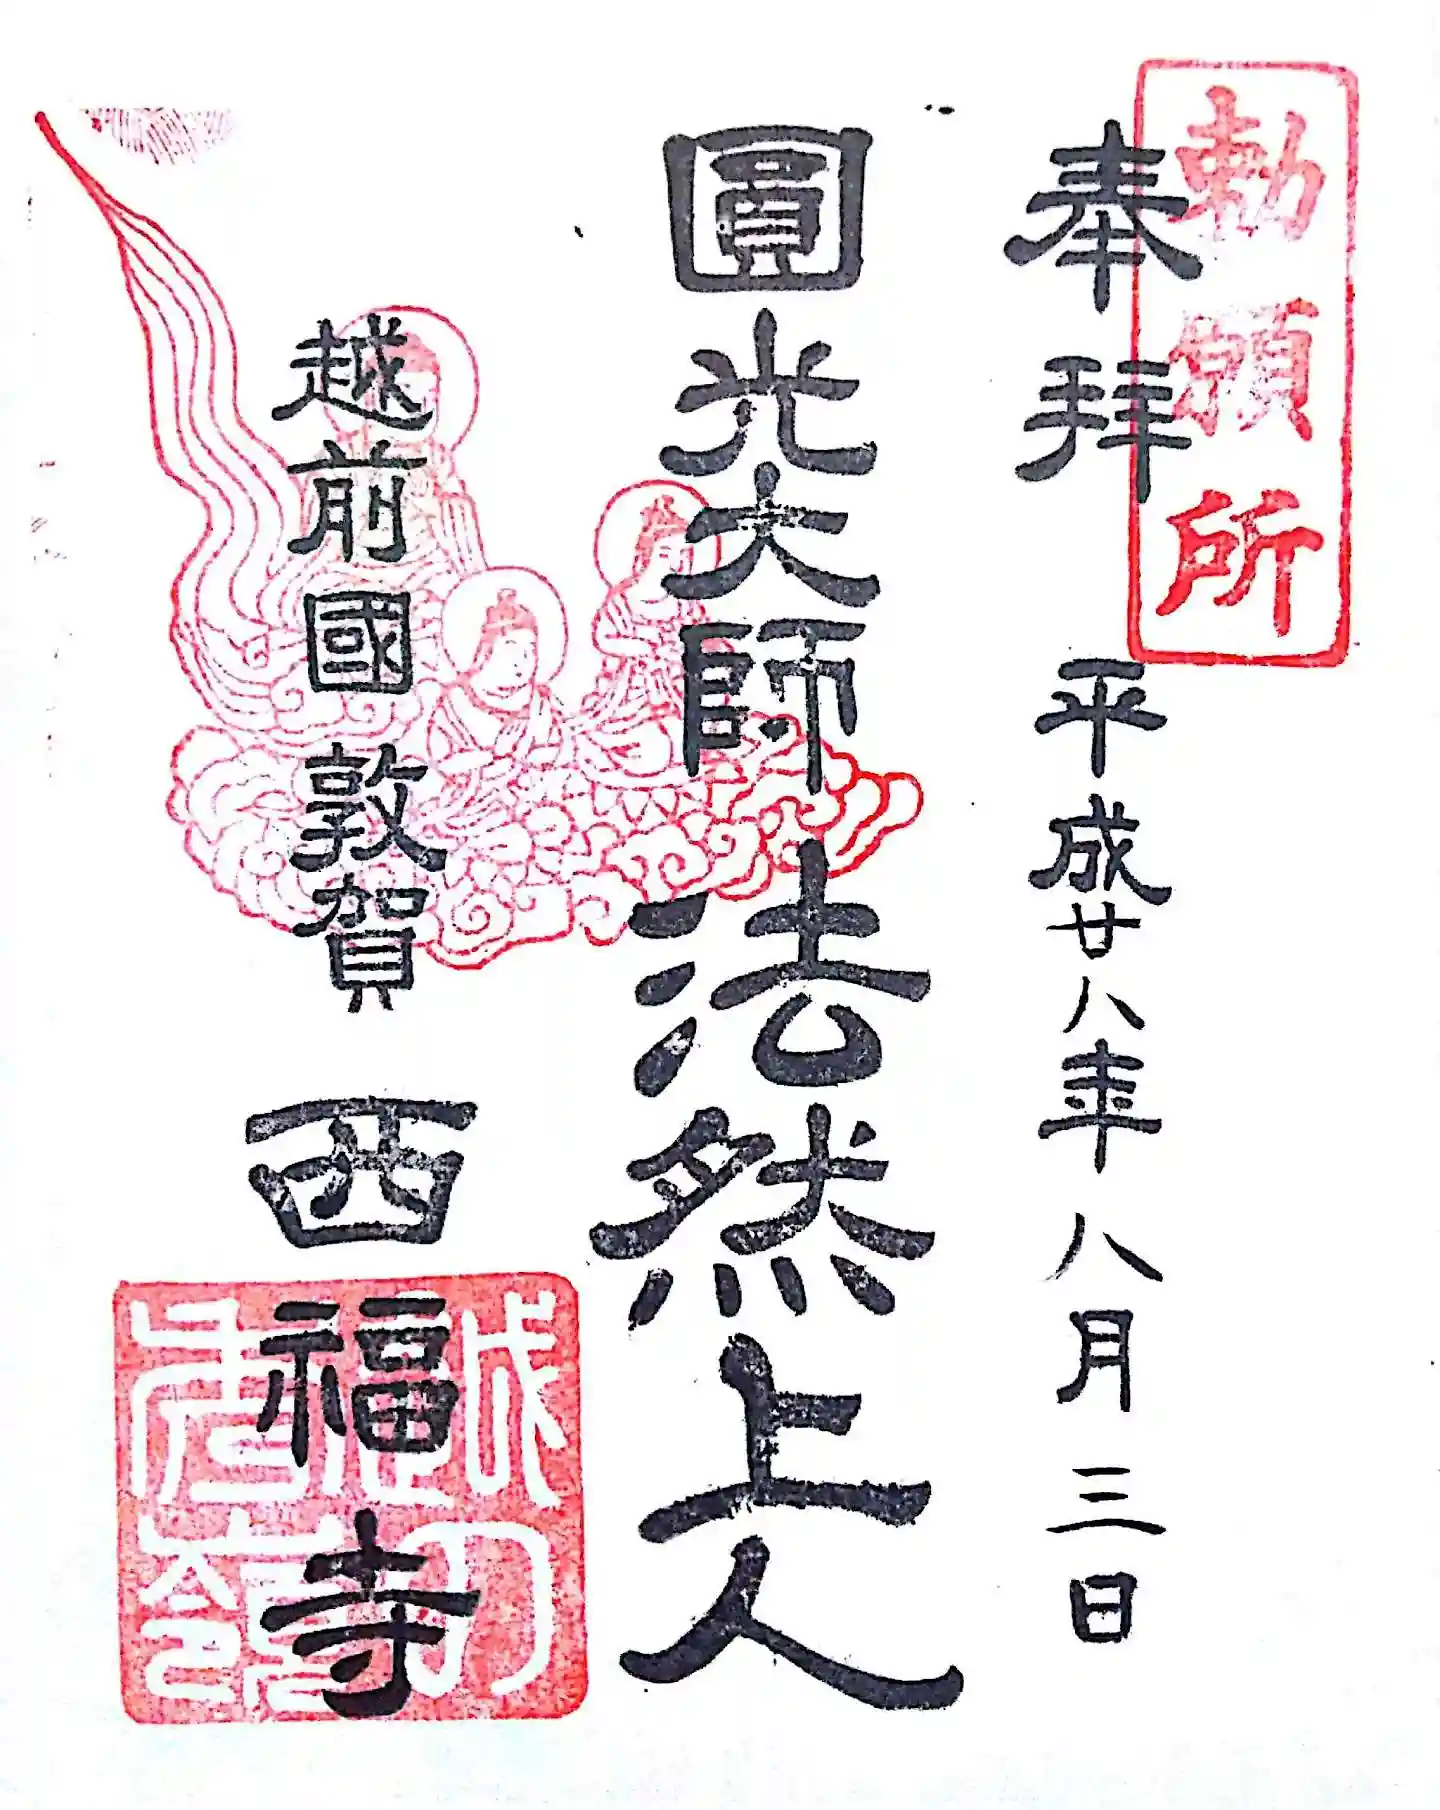 勅願所
奉拝 平成廿八年八月三日
圓光大師 法然上人
越前國敦賀 西福寺